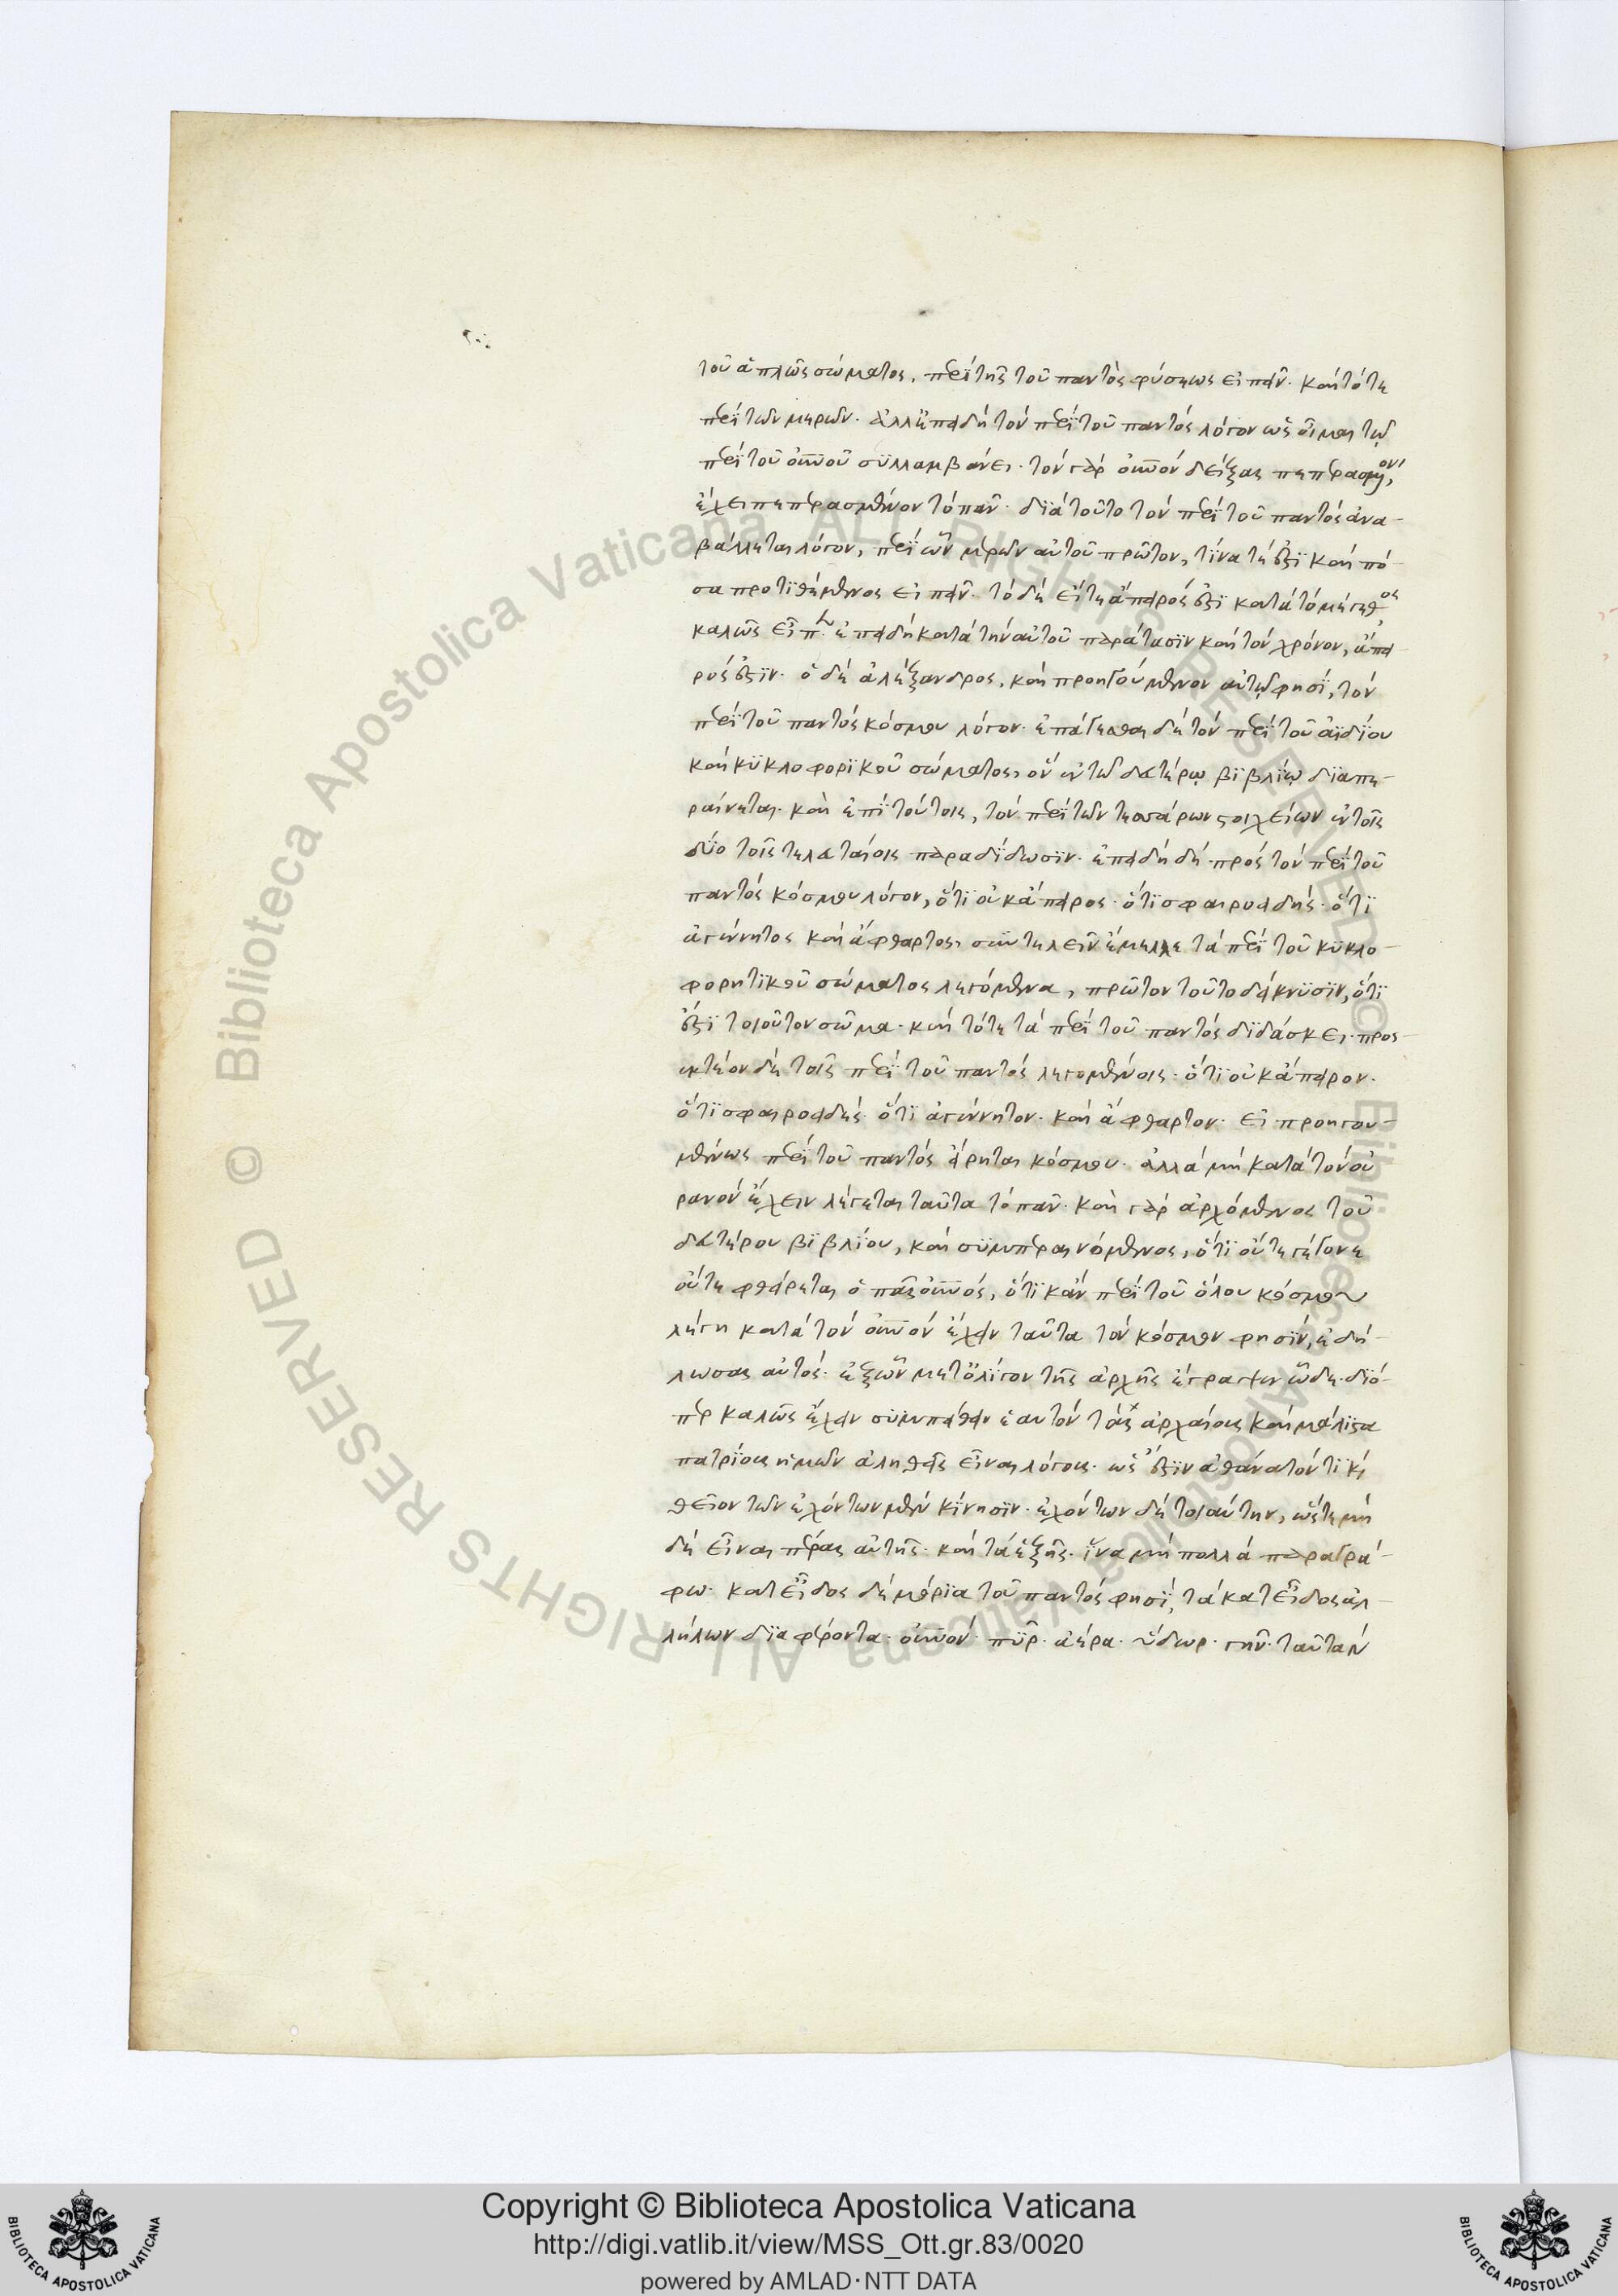 τοῦ ἁπλῶς σώματος, περὶ τῆς τοῦ παντὸς φύσεως εἰπεῖν· καὶ τότε
περὶ τῶν μερῶν· ἀλλ' ἐπειδὴ τὸν περὶ τοῦ παντὸς λόγον ὡς οἶμαι τῷ
περὶ τοῦ οὐνοῦ συλλαμβάνει· τὸν γὰρ οὐνὸν δείξας πεπερασμένον,
ἔχει πεπερασμένον τὸ πᾶν· διὰ τοῦτο τὸν περὶ τοῦ παντὸς ἀνα-
βάλλεται λόγον, περὶ ὧν μερῶν αὐτοῦ πρῶτον, τίνα τέ ἐστι καὶ πό-
σα προτιθέμενος εἰπεῖν· τὸ δὲ εἴτε ἄπειρός ἐστι κατὰ τὸ μέγεθος
καλῶς εἶπεν· ἐπειδὴ κατὰ τὴν αὐτοῦ παράτασιν καὶ τὸν χρόνον, ἄπει-
ρός ἐστιν· ὁ δὲ ἀλέξανδρος, καὶ προηγούμενον αὐτῷ φησί, τὸν
περὶ τοῦ παντὸς κόσμου λόγον· ἐπάγεσθαι δὲ τὸν περὶ τοῦ ἀϊδίου
καὶ κυκλοφορικοῦ σώματος, ὃν ἐν τῷ δευτέρῳ βιβλίῳ διαπε-
ραίνεται· καὶ ἐπὶ τούτοις, τὸν περὶ τῶν τεσσάρων στοιχείων ἐν τοῖς
δύο τοῖς τελευταίοις παραδίδωσιν· ἐπειδὴ δὲ πρὸς τὸν περὶ τοῦ
παντὸς κόσμου λόγον, ὅτι οὐκ ἄπειρος· ὅτι σφαιροειδής· ὅτι
ἀγέννητος καὶ ἄφθαρτος, συντελεῖν ἔμελλε τὰ περὶ τοῦ κυκλο-
φορητικοῦ σώματος λεγόμενα, πρῶτον τοῦτο δείκνυσιν, ὅτι
ἐστὶ τοιοῦτον σῶμα· καὶ τότε τὰ περὶ τοῦ παντὸς διδάσκει· προσ-
εκτέον δὲ τοῖς περὶ τοῦ παντὸς λεγομένοις· ὅτι οὐκ ἄπειρον·
ὅτι σφαιροειδής· ὅτι ἀγέννητον· καὶ ἄφθαρτον· εἰ προηγου-
μένως περὶ τοῦ παντὸς εἴρηται κόσμου· ἀλλὰ μὴ κατὰ τὸν οὐ
ρανὸν ἔχειν λέγεται ταῦτα τὸ πᾶν· καὶ γὰρ ἀρχόμενος τοῦ
δευτέρου βιβλίου, καὶ συμπεραινόμενος, ὅτι οὔτε γέγονε
οὔτε φθείρεται ὁ πᾶς οὐνός, ὅτι κἂν περὶ τοῦ ὅλου κόσμου
λέγῃ κατὰ τὸν οὐνὸν ἔχειν ταῦτα τὸν κόσμον φησίν, ἐδή-
λωσας αὐτός· ἐξ ὧν μετ' ὀλίγον τῆς ἀρχῆς ἔγραψεν ὧδε· διό-
περ καλῶς ἔχειν συμπείθειν ἑαυτὸν τοὺς ἀρχαίους καὶ μάλιστα
πατρίους ἡμῶν ἀληθεῖς εἶναι λόγους· ὡς ἔστιν ἀθάνατόν τι καὶ
θεῖον τῶν ἐχόντων μὲν κίνησιν· ἐχόντων δὲ τοιαύτην, ὥστε μη
δὲ εἶναι πέρας αὐτῆς· καὶ τὰ ἑξῆς· ἵνα μὴ πολλὰ παραγρά-
φω· κατ' εἶδος δὲ μόρια τοῦ παντὸς φησί, τὰ κατ' εἶδος ἀλ-
λήλων διαφέροντα· οὐνόν· πῦρ· ἀέρα· ὕδωρ· γῆν· ταῦτα